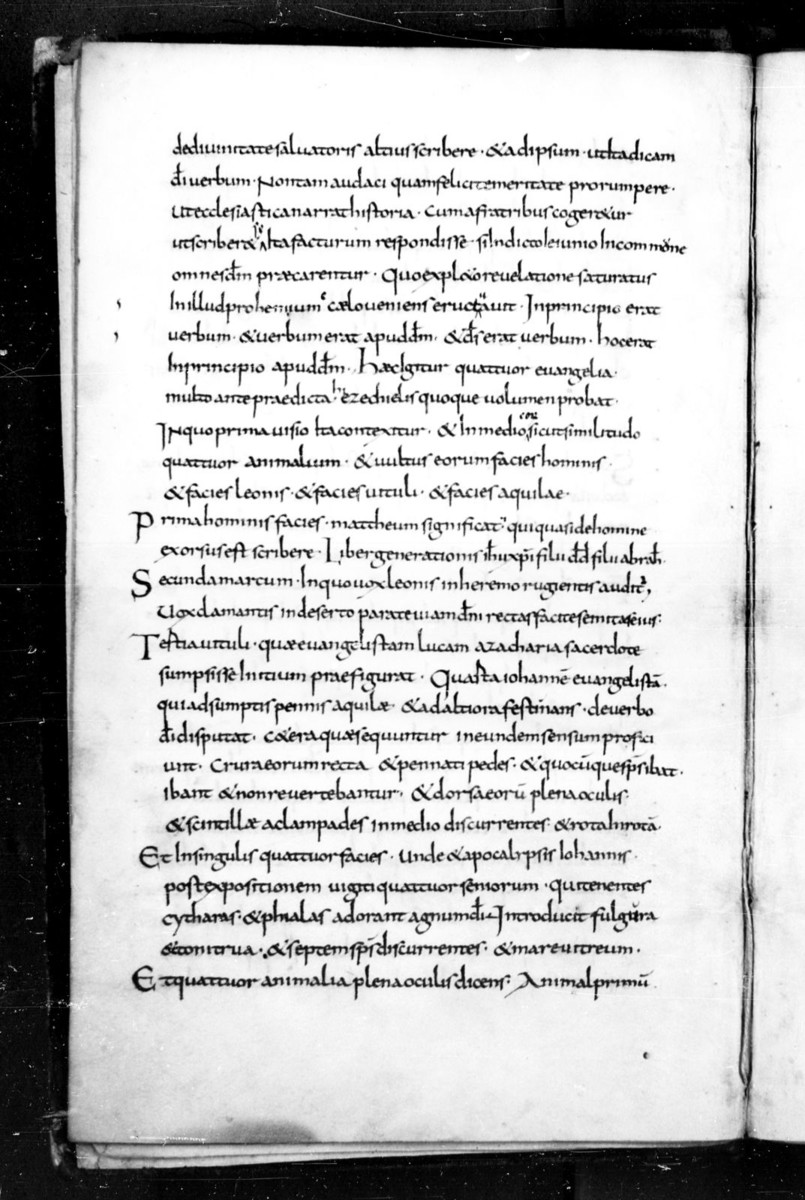 dediuinitate saluatoris altius scribere · & adipsum · utita dicam
d̄i uerbum · Non tam audaci quam felici temeritate prorumpere ·
ut ecclesiastica narrat historia · Cum afratribus coger&ur
ut scriber& ita facturum respondisse · si indicto ieiunio Incommune
omnes d̄m praecarentur · Quo expl&o reuelatione saturatus
In illud prohemium caelo ueniens eructauit · In principio erat
uerbum · & uerbum erat apud d̄m · & d̄s erat uerbum · hoc erat
In principio apud d̄m · Haec Igitur quattuor euangelia
multo ante praedicta hezechielis quoque uolumen probat ·
IN quo prima uisio Ita contexitur · & In medio sicut similitudo
quattuor animalium · & uultus eorum facies hominis ·
& facies leonis · & facies uituli · & facies aquilae ·
Prima hominis facies · mattheum significat · qui quasi dehomine
exorsus est scribere · Liber generationis ih̄u xp̄i filii dd̄ filii abrah̄ ·
Secunda marcum · In quo uox leonis in heremo rugientis audit᷑
Uox clamantis in deserto parate uiam dn̄i rectas facite semitas eius ·
Tertia uituli · quae euangelistam lucam azacharia sacerdote
sumpsisse Initium praefigurat · Quarta iohannē euangelistā ·
qui adsumptis pennis aquilae · & ad altiora festinans · de uerbo
d̄i disputat · C&era quae sequuntur in eundem sensum profici
unt · Crura eorum recta & pennati pedes · & quocūque sp̄s ibat ·
ibant & non reuertebantur · & dorsa eorū plena oculis
& scintillae ac lampades in medio discurrentes · & rota In rotā ·
Et In singulis quattuor facies · Unde & apocalipsis Iohannis ·
post expositionem uigiti quattuor seniorum · qui tenentes
cytharas · & phialas adorant agnum d̄i · Introducit fulgura
& tonitrua · & septem sp̄s discurrentes · & mare uitreum ·
Et quattuor animalia plena oculis dicens · Animal primū